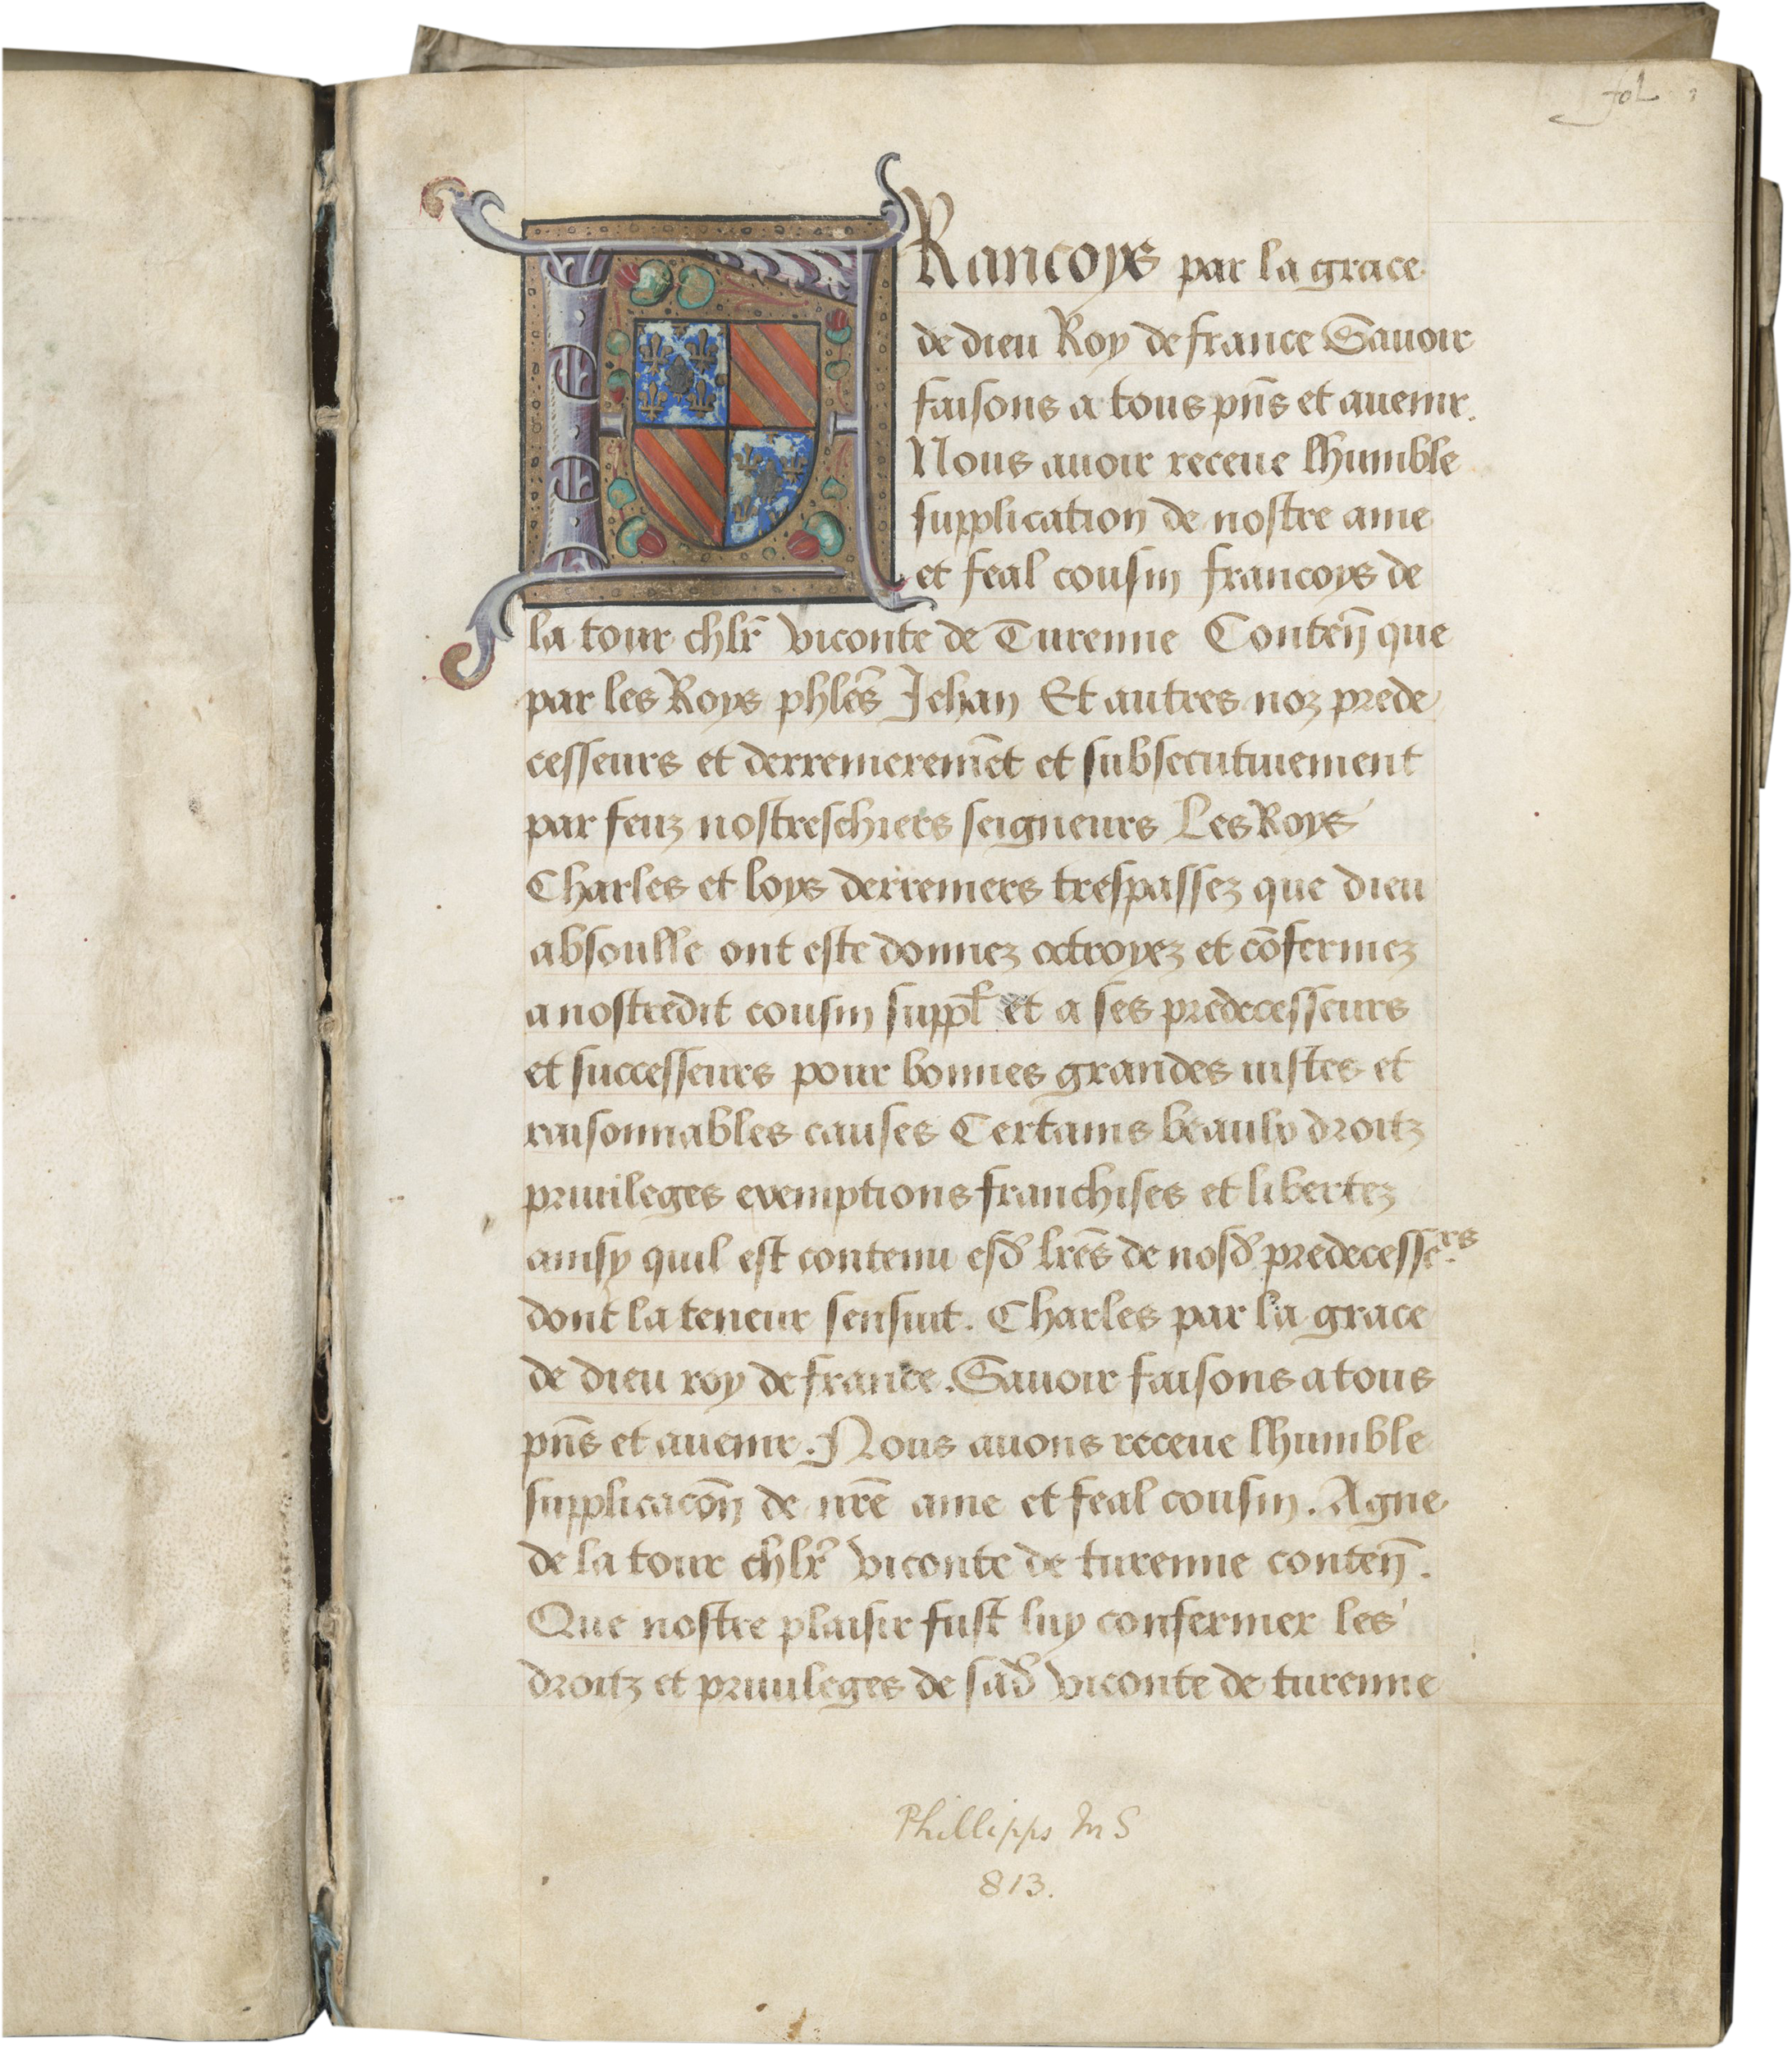 fol 1
FRancoys par la grace
de dieu Roy de france Sauoir
faisons a tous pn̄s et auenir.
Nous auoir receue lhumble
supplication de nostre ame
et feal cousin francoys de
la tour chlr̄ viconte de Turenne Conten̄ que
par les Roys phlēs Jehan Et autres noz prede
cesseurs et derrenieremēt et subsecutiuement
par feuz nostreschiers seigneurs Les Roys
Charles et loys derreniers trespassez que dieu
absoulle ont este donnez octroyez et cōfermez
a nostredit cousin suppl̄ et a ses predecesseurs
et successeurs pour bonnes grandes iustes et
raisonnables causes Certains beaulx droitz
priuileges exemptions franchises et libertez
ainsy quil est contenu esd̄ lrēs de nosd̄ predecesse.rs
dont la teneur sensuit. Charles par la grace
de dieu roy de france. Sauoir faisons a tous
pn̄s et auenir. Nous auons receue lhumble
supplicacōn de nrē ame et feal cousin. Agne
de la tour chlr̄ viconte de turenne conten̄.
Que nostre plaisir fust luy confermer les
droitz et priuileges de sad̄ viconte de turenne
Phillipps MS
813.